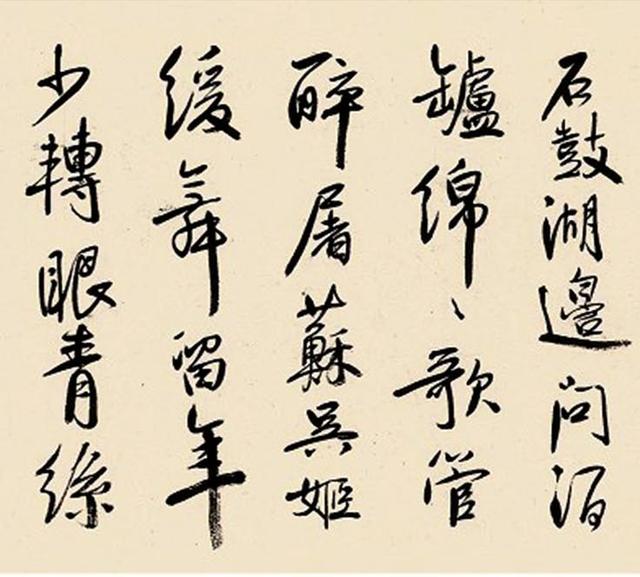 石鼓湖邊問酒
罏綿〻歌管
醉屠蘇吳姬
緩舞留年
少轉眼青絲